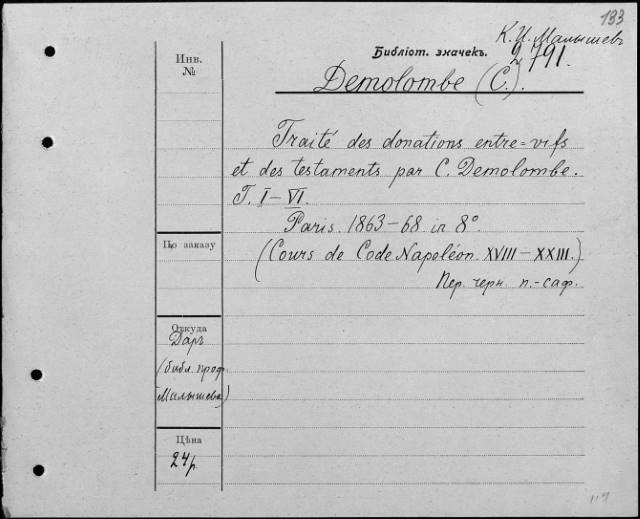 133
К. И. Малышевъ
Библіот. значекъ. 2/791.
Инв.
№
Demolombe (C.).
Traité des donations entre=vifs
et des testaments par C. Demolombe.
T. I–VI.
Paris. 1863–68. in 8°.
(Cours de Code Napoléon. XVIII–XXIII.)
Пер. черн. п.-саф.
По заказу
Откуда
Даръ
(библ. проф.
Малышева)
Цѣна
24 р.